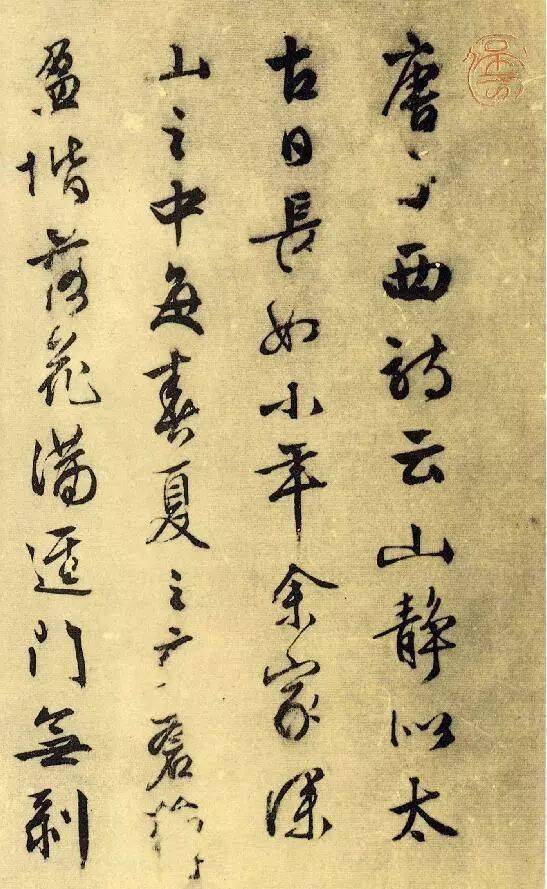 唐西詩云山靜似太
古日長如小年余家深
山之中每春夏之交蒼
盈階落花滿徑門無剝